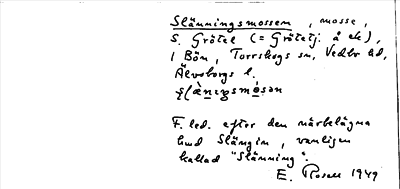 Slänningsmossen, mosse,
S. Grötel (= Grötetj. å ek),
i Bön, Torrskogs sn, Vedbo hd,
Älvsborgs l.
F. led. efter den närbelägna
hmd Slängin, vanligen
kallad "Slänning".
E. Rosell 1949